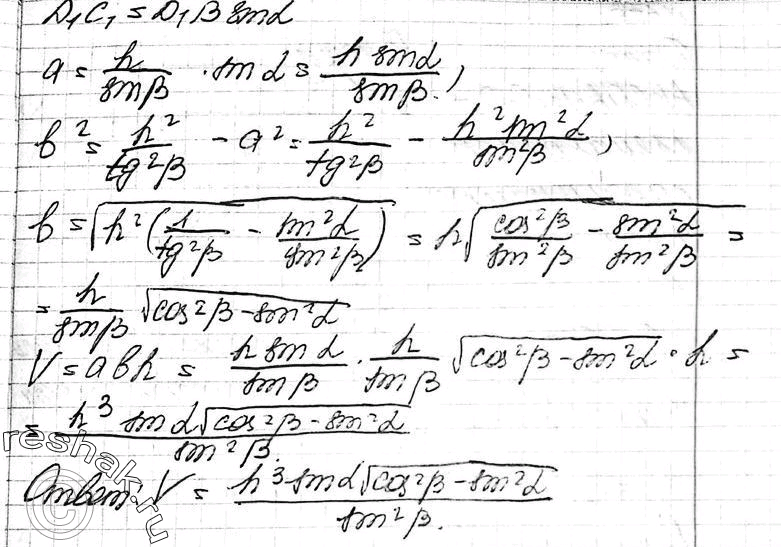 D₁C₁ = D₁B sin α
a = h/sin β · sin α = h sin α/sin β,
b² = h²/tg²β - a² = h²/tg²β - h² sin²α/sin²β,
b = √(h²(1/tg²β - sin²α/sin²β)) = h√(cos²β/sin²β - sin²α/sin²β) =
= h/sin β √(cos²β - sin²α)
V = abh = h sin α/sin β · h/sin β √(cos²β - sin²α) · h =
= h³ sin α√(cos²β - sin²α)/sin²β.
Ответ: V = h³ sin α√(cos²β - sin²α)/sin²β.
reshak.ru
©